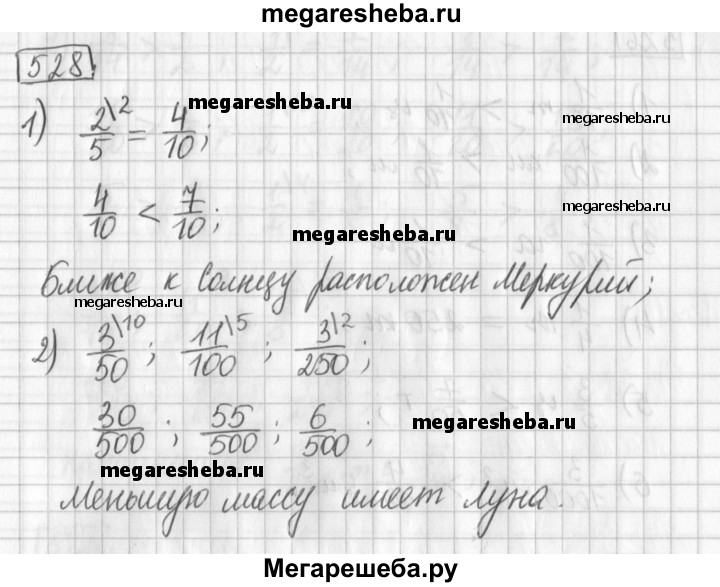 megaresheba.ru
528
1) 2\2/5 = 4/10; megaresheba.ru
4/10 < 7/10; megaresheba.ru
megaresheba.ru
Ближе к Солнцу расположен Меркурий;
megaresheba.ru
2) 3\10/50; 11\5/100; 3\2/250; megaresheba.ru
30/500; 55/500; 6/500; megaresheba.ru
megaresheba.ru
Меньшую массу имеет Луна.
Мегарешеба.ру